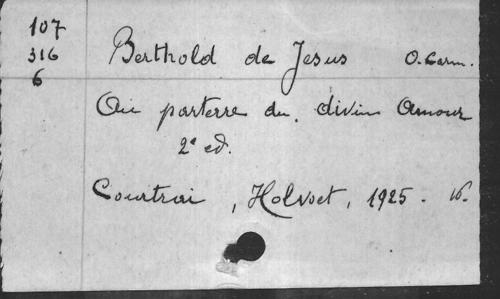 107
316
6
Berthold de Jesus O. Carm.
Au parterre du divin Amour
2e ed.
Courtrai, Holvoet, 1925. 16.